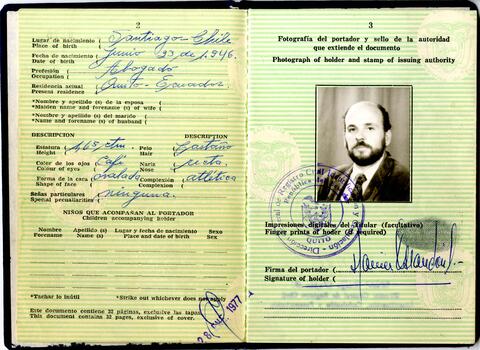 2
Lugar de nacimiento Santiago, Chile
Place of birth
Fecha de nacimiento Junio 23 de 1.946.
Date of birth
Profesión Abogado
Occupation
Residencia actual Quito - Ecuador.
Present residence
*Nombre y apellidos de la esposa
*Maiden name and forenames of wife
*Nombre y apellidos del marido
*Name and forenames of husband
DESCRIPCION DESCRIPTION
Estatura 1,65 ctm. Pelo Castaño
Height Hair
Color de los ojos Café Nariz recta.
Colour of eyes Nose
Forma de la cara Complexión atlética
Shape of face Complexion
Señas particulares ninguna.
Special peculiarities
NIÑOS QUE ACOMPAÑAN AL PORTADOR
Children accompanying holder
Nombre Apellido (s) Lugar y fecha de nacimiento Sexo
Forename Name (s) Place and date of birth Sex
*Tachar lo inútil *Strike out whichever does not apply
Este documento contiene 32 páginas, exclusive las tapas
This document contains 32 pages, exclusive of cover.
1977
3
Fotografía del portador y sello de la autoridad
que extiende el documento
Photograph of holder and stamp of issuing authority
Quito
Impresiones digitales del titular (facultativo)
Finger prints of hoder (if required)
Firma del portador
Signature of holder